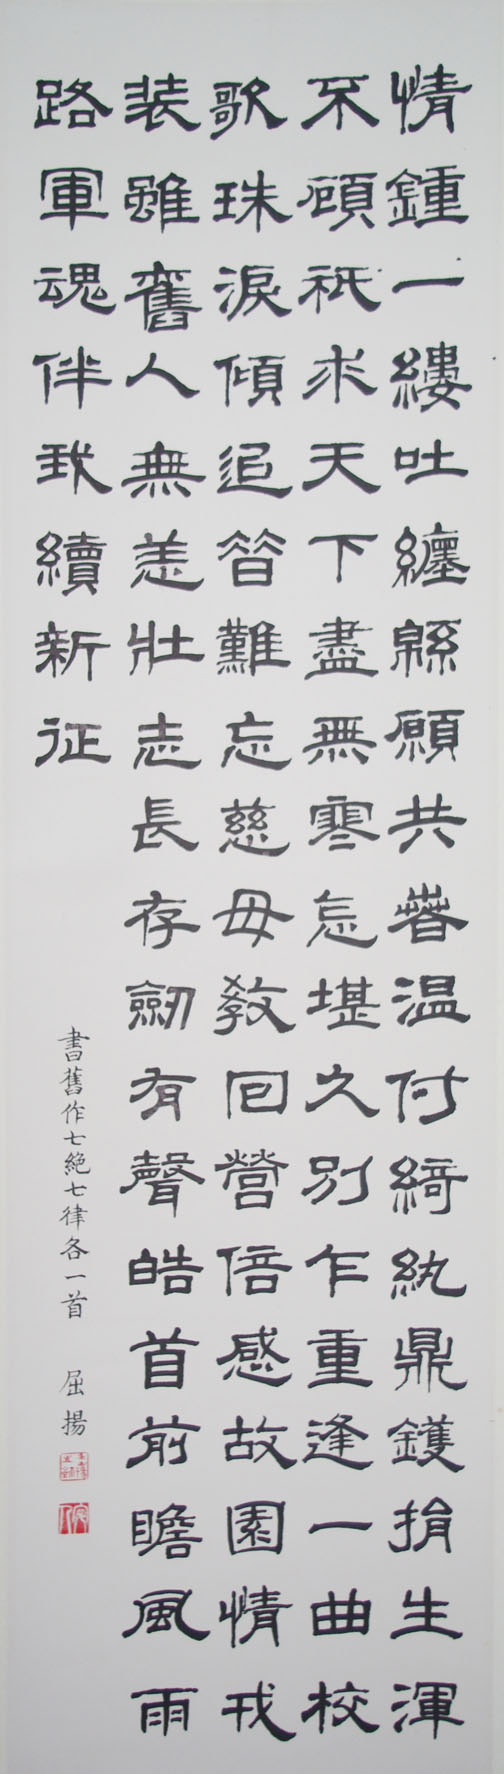 情鍾一縷吐纏緜願共萅温付綺紈鼎鑊捐生渾
不顧祇求天下盡無寒怎堪久別乍重逢一曲校
歌珠淚傾追昔難忘慈母教回營倍感故園情戎
装雖舊人無恙壯志長存劒有聲皓首前瞻風雨
路軍魂伴我續新征
書舊作七絕七律各一首 屈揚